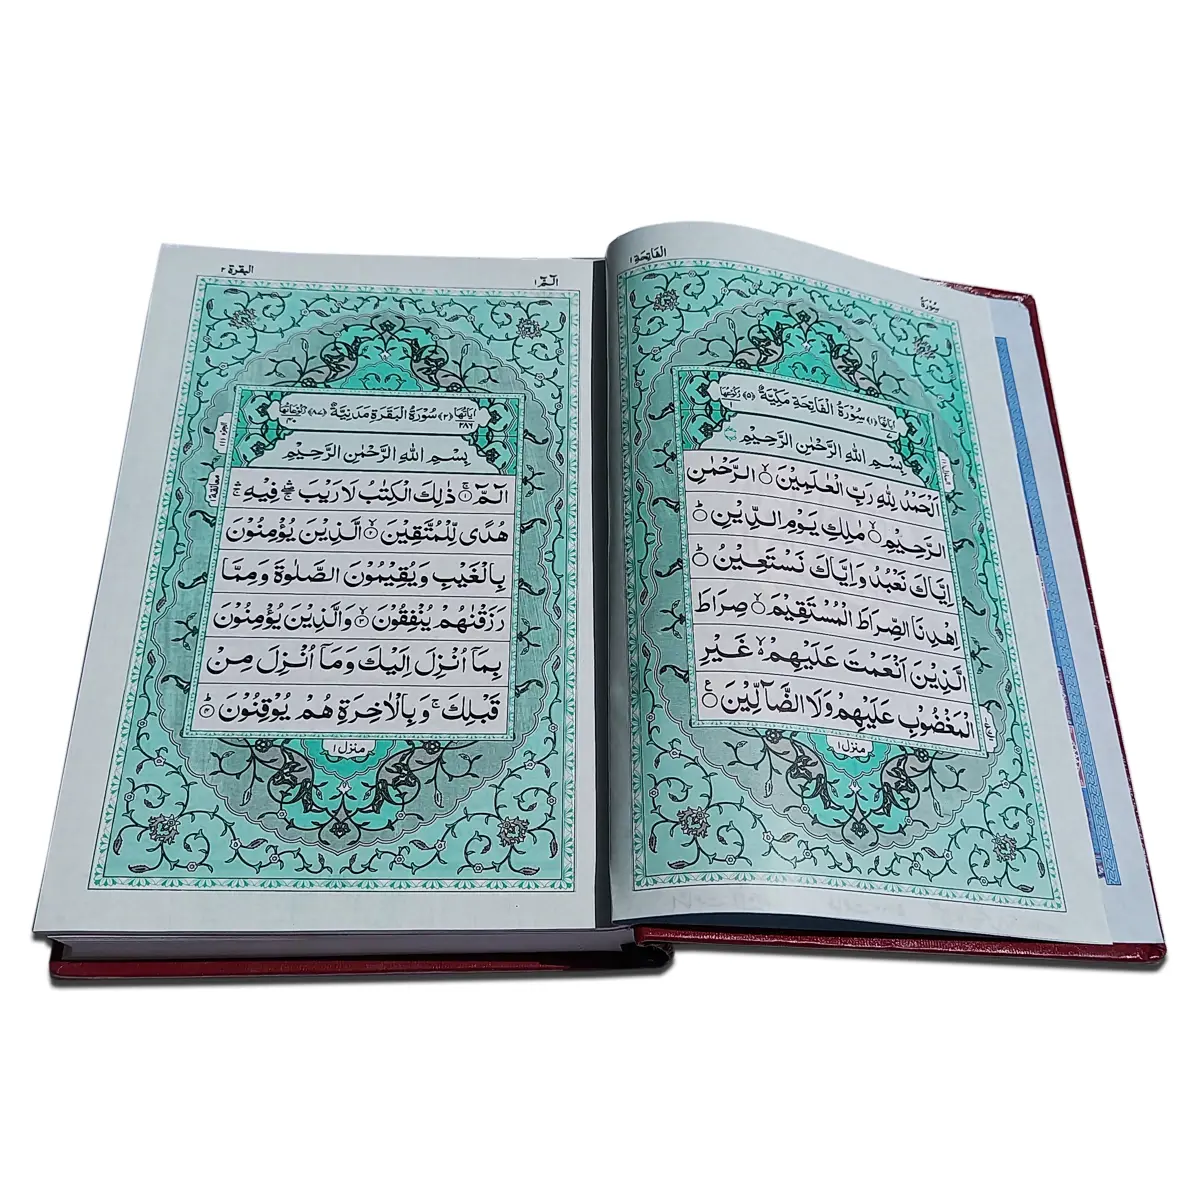 الفاتحة ١
سُوْرَةُ
اٰيَاتُهَا ٧ ﴿١﴾ سُوْرَةُ الْفَاتِحَةِ مَكِّيَّةٌ ﴿٥﴾ رُكُوْعُهَا ١
بِسْمِ اللهِ الرَّحْمٰنِ الرَّحِيْمِ
اَلْحَمْدُ لِلّٰهِ رَبِّ الْعٰلَمِيْنَ ۙ الرَّحْمٰنِ
الرَّحِيْمِ ۙ مٰلِكِ يَوْمِ الدِّيْنِ ؕ
اِيَّاكَ نَعْبُدُ وَاِيَّاكَ نَسْتَعِيْنُ ؕ
اِهْدِنَا الصِّرَاطَ الْمُسْتَقِيْمَ ۙ صِرَاطَ
الَّذِيْنَ اَنْعَمْتَ عَلَيْهِمْ ۙ غَيْرِ
الْمَغْضُوْبِ عَلَيْهِمْ وَلَا الضَّآلِّيْنَ
منزل ١
البقرة ٢
الٓمّٓ ١
اٰيَاتُهَا ٢٨٦ ﴿٢﴾ سُوْرَةُ الْبَقَرَةِ مَدَنِيَّةٌ ﴿٨٧﴾ رُكُوْعَاتُهَا ٤٠
بِسْمِ اللهِ الرَّحْمٰنِ الرَّحِيْمِ
الٓمّٓ ۚ ذٰلِكَ الْكِتٰبُ لَا رَيْبَ ۛ فِيْهِ ۛ
هُدًى لِّلْمُتَّقِيْنَ ۙ الَّذِيْنَ يُؤْمِنُوْنَ
بِالْغَيْبِ وَيُقِيْمُوْنَ الصَّلٰوةَ وَمِمَّا
رَزَقْنٰهُمْ يُنْفِقُوْنَ ۙ وَالَّذِيْنَ يُؤْمِنُوْنَ
بِمَآ اُنْزِلَ اِلَيْكَ وَمَآ اُنْزِلَ مِنْ
قَبْلِكَ ۚ وَبِالْاٰخِرَةِ هُمْ يُوْقِنُوْنَ ؕ
منزل ١
معانقة ١